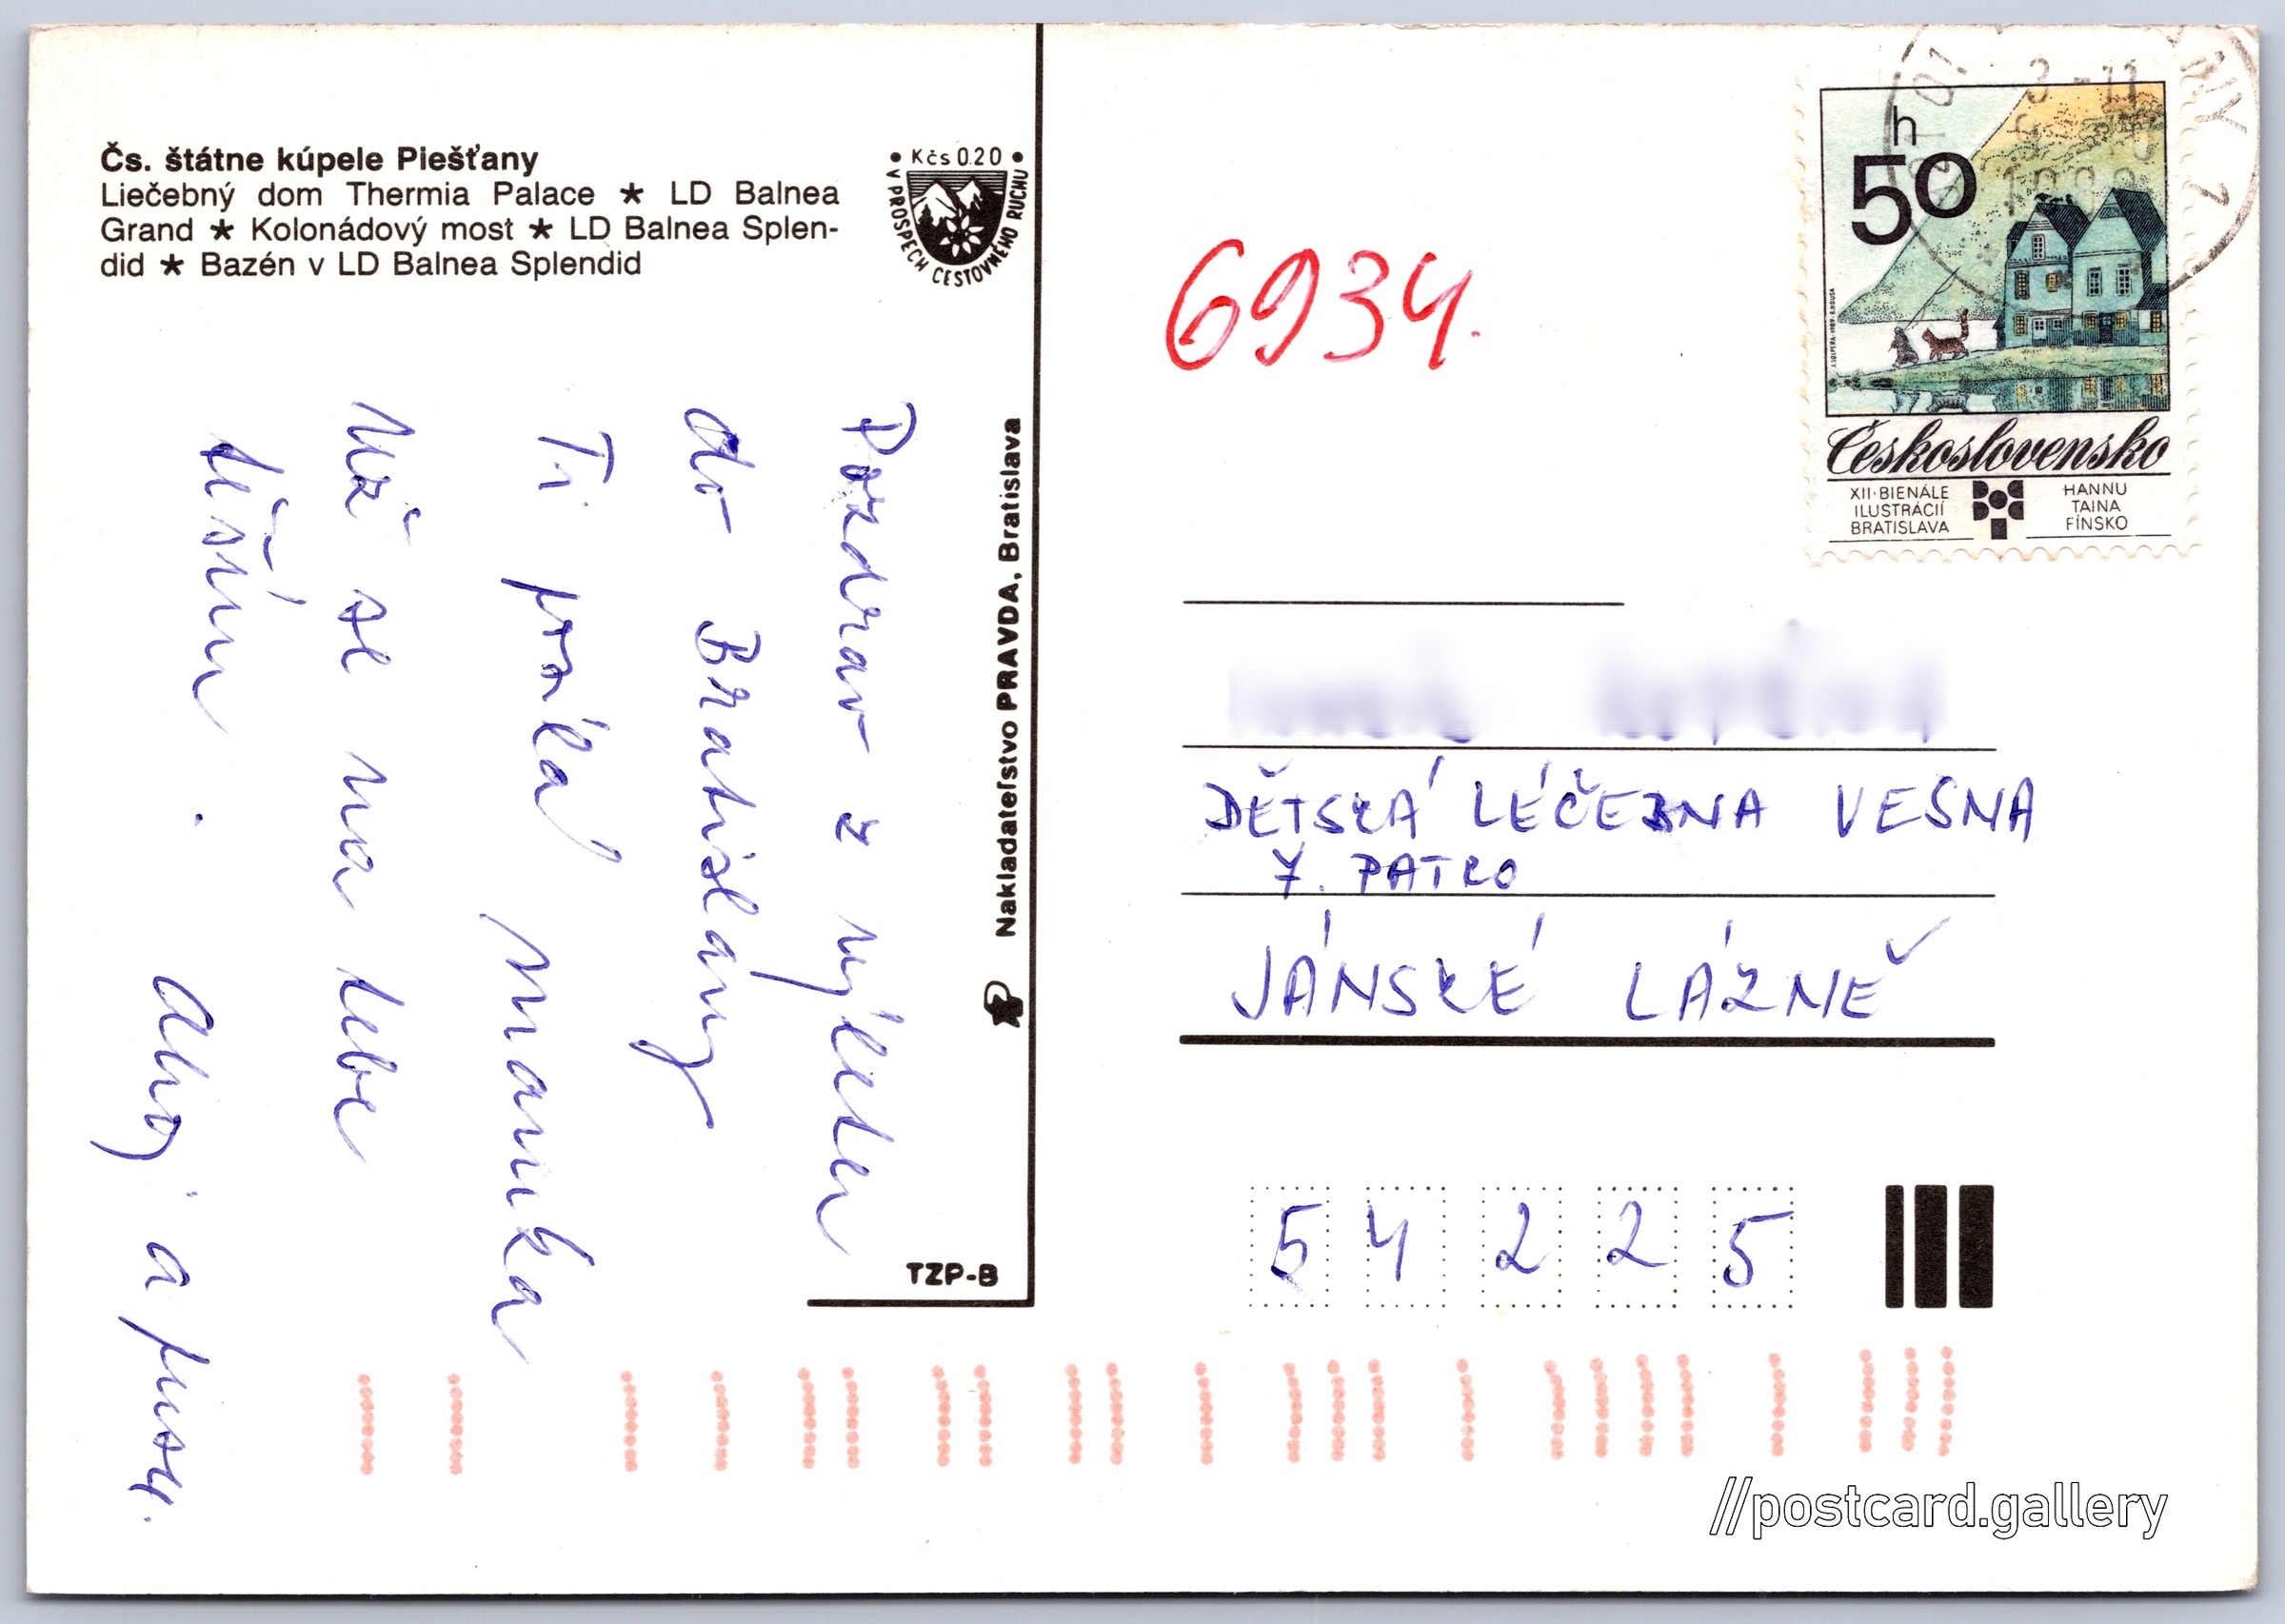 Čs. štátne kúpele Piešťany
Liečebný dom Thermia Palace ★ LD Balnea
Grand ★ Kolonádový most ★ LD Balnea Splen-
did ★ Bazén v LD Balnea Splendid
• Kčs 0.20 •
V PROSPECH CESTOVNÉHO RUCHU
Pozdrav z výletu
do Bratislavy
Ti posílá maminka
Už se na tebe
těším.
Ahoj a pusu.
Nakladateľstvo PRAVDA, Bratislava
TZP-B
6934.
3 -11
h
50
J. SOLPERA · 1989 · B. HOUSA
Československo
XII · BIENÁLE
ILUSTRÁCIÍ
BRATISLAVA
HANNU
TAINA
FÍNSKO
DĚTSKÁ LÉČEBNA VESNA
7. PATRO
JÁNSKÉ LÁZNĚ
5 4 2 2 5
//postcard.gallery